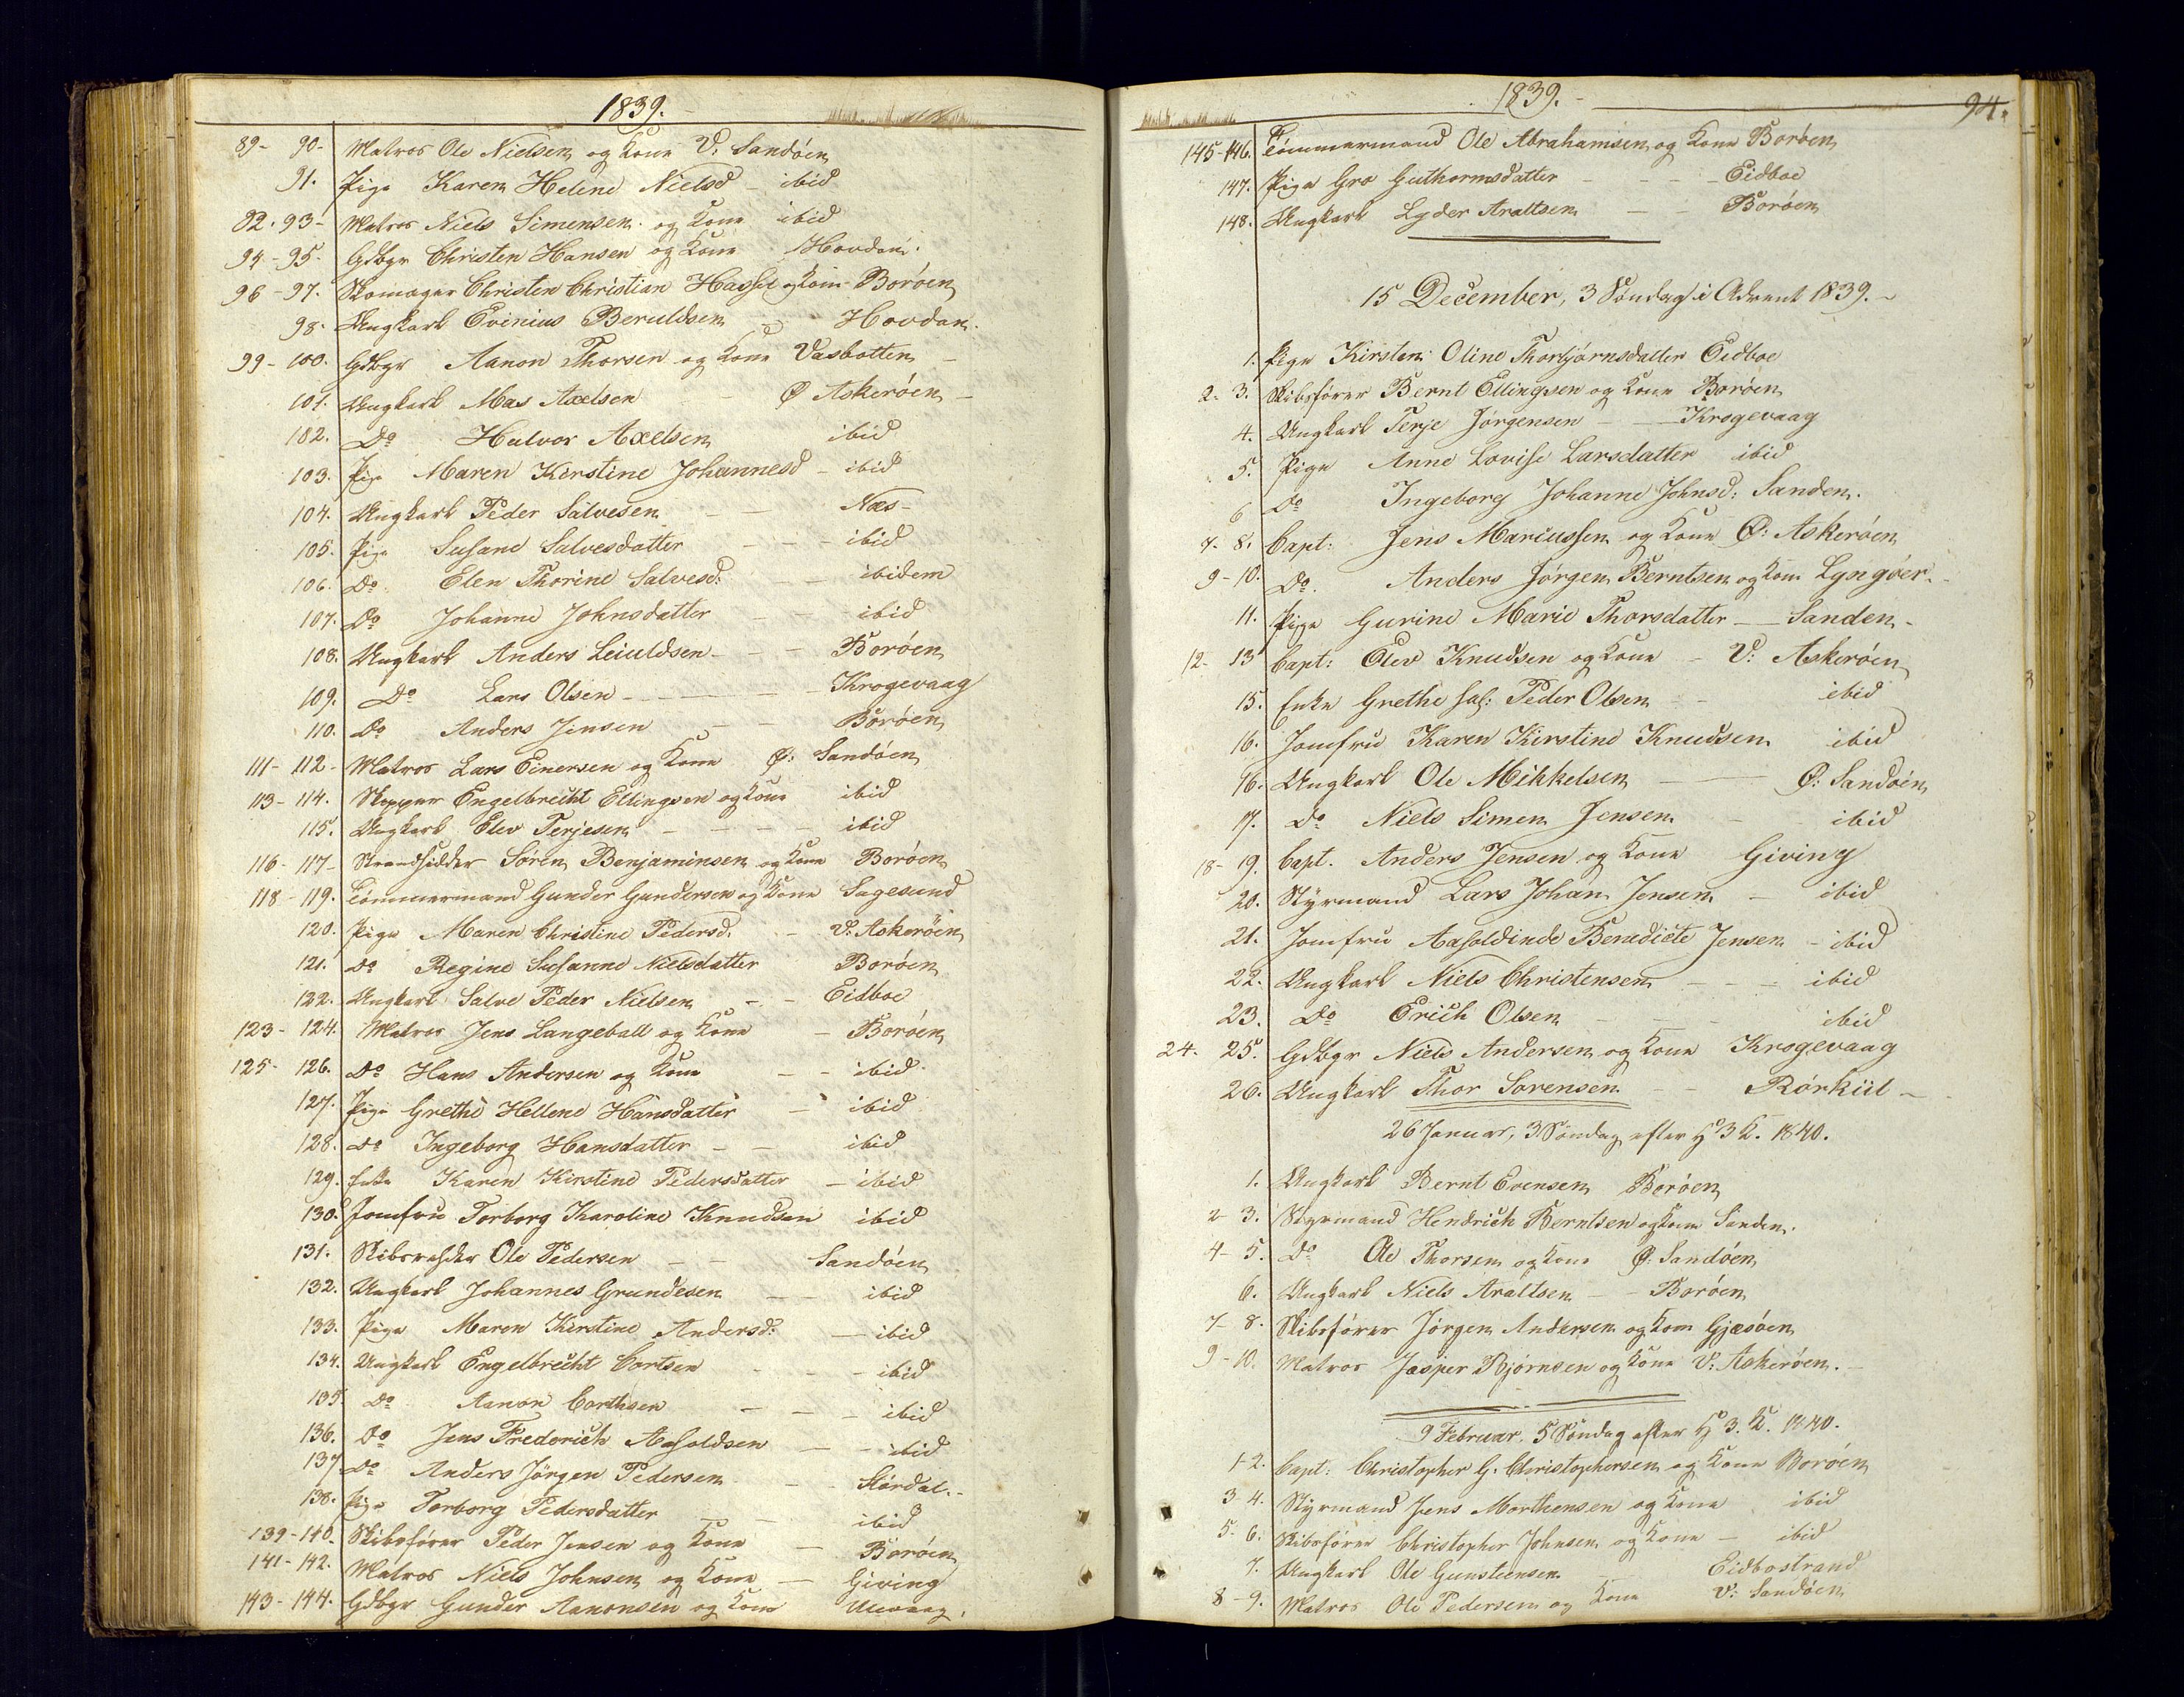 1839.
89- 90- Matros Ole Nielsen og Kone V: Sandøen
91. Pige Karen Heline Nielsd - ibid
92. 93- Matros Niels Simensen og Kone ibid
94- 95- Gdbgr Christen Hansen og Kone Hovdan.
96-97. Skomager Christen Christian Hassel og Kone Borøen
98. Ungkarl Evinius Beruldsen Hovdan.
99-100. Gdbgr Aanon Thorsen og Kone Vasbotten
101. Ungkarl Mas Axelsen Ø Askerøen
102. Do Halvor Axelsen ibid
103. Pige Maren Kirstine Johannesd - ibid
104. Ungkarl Peder Salvesen Næs-
105. Pige Susane Salvesdatter ibid
106. Do. Elen Thorine Salvesd: ibidem
107. Do Johanne Johnsdatter ibid
108. Ungkarl Anders Leiuldsen Borøen
109. Do Lars Olsen Krogevaag
110. Do Anders Jensen Borøen
111-112- Matros Lars Einersen og Kone Ø: Sandøen
113-114. Skipper Engelbrecht Ellingsen og Kone ibid
115. Ungkarl Elev Terjesen ibid
116-117- Strandsidder Søren Benjaminsen og Kone Borøen
118-119. Tømmermand Gunder Gundersen og Kone Sagesund
120. Pige Maren Christine Pedersd. V: Askerøen
121. Do Regine Susanne Nielsdatter Borøen
122. Ungkarl Salve Peder Nielsen Eidboe
123-124. Matros Jens Langeball og Kone Borøen
125-126. Do Hans Andersen og Kone ibid
127. Pige Grethe Hellene Hansdatter ibid
128. Do Ingeborg Hansdatter ibid
129. Enke Karen Kirstine Pedersdatter - ibid
130. Jomfru Torborg Karoline Knudsen ibid
131. Skibsrehder Ole Pedersen Sandøen
132. Ungkarl Johannes Grundesen ibid
133. Pige Maren Kirstine Andersd: ibid
134. Ungkarl Engelbrecht Cortsen ibid
135. Do Aanon Corthsen ibid
136. Do Jens Frederich Aasoldsen ibid
137 Do Anders Jørgen Pedersen Størdal.
138. Pige Torborg Pedersdatter ibid
139-140. Skibsfører Peder Jensen og Kone Borøen
141-142. Matros Niels Johnsen og Kone Giving
143-144. Gdbgr Gunder Aanonsen og Kone
1839. 94.
145-146. Tømmermand Ole Abrahamsen og Kone Borøen
147. Pige Gro Guthormsdatter Eidboe
148. Ungkarl Lyder Araltsen Borøen
15 December, 3 Søndag i Advent 1839.
1. Pige Kirsten Oline Thorbjørnsdatter Eidboe
2. 3. Skibsfører Bernt Ellingsen og Kone Borøen
4. Ungkarl Terje Jørgensen Krogevaag
5. Pige Anne Lovise Larsdatter ibid
6 Do Ingeborg Johanne Johnsd: Sanden.
7. 8. Capt: Jens Mariussen og Kone Ø: Askerøen
9-10. Do. Anders Jørgen Berntsen og Kone Lyngøer.
11. Pige Gurine Marie Thorsdatter Sanden
12- 13 Capt: Elev Knudsen og Kone V: Askerøen
15. Enke Grethe sal: Peder Olsen ibid
16. Jomfru Karen Kirstine Knudsen ibid
16. Ungkarl Ole Mikkelsen Ø: Sandøen
17. Do Niels Simen Jensen ibid
18- 19. Capt. Anders Jensen og Kone Giving
20. Styrmand Lars Johan Jensen ibid
21. Jomfru Aasoldinde Benedicte Jensen - ibid
22. Ungkarl Niels Christensen ibid
23. Do Erich Olsen ibid
24. 25. Gdbgr Niels Andersen og Kone Krogevaag
26. Ungkarl Thor Sørensen Rørkiil
26 Januar, 3 Søndag efter H 3 K. 1840.
1. Ungkarl Bernt Evensen Borøen
2- 3. Styrmand Hendrich Berntsen og Kone Sanden.
4- 5. Do Ole Thorsen og Kone Ø: Sandøen
6. Ungkarl Niels Araltsen Borøen
7- 8. Skibsfører Jørgen Andersen og Kone Gjæsøen
9-10. Matros Jasper Bjørnsen og Kone V: Askerøen.
9 Februar. 5 Søndag efter H 3. K. 1840.
1-2. Capt: Christopher G. Christophersen og Kone Borøen
3-4. Styrmand Jens Morthensen og Kone ibid
5-6. Skibsfører Christopher Johnsen og Kone - ibid
7. Ungkarl Ole Gunsteensen Eidbostrand
8-9. Matros Ole Pedersen og Kone V: Sandøen